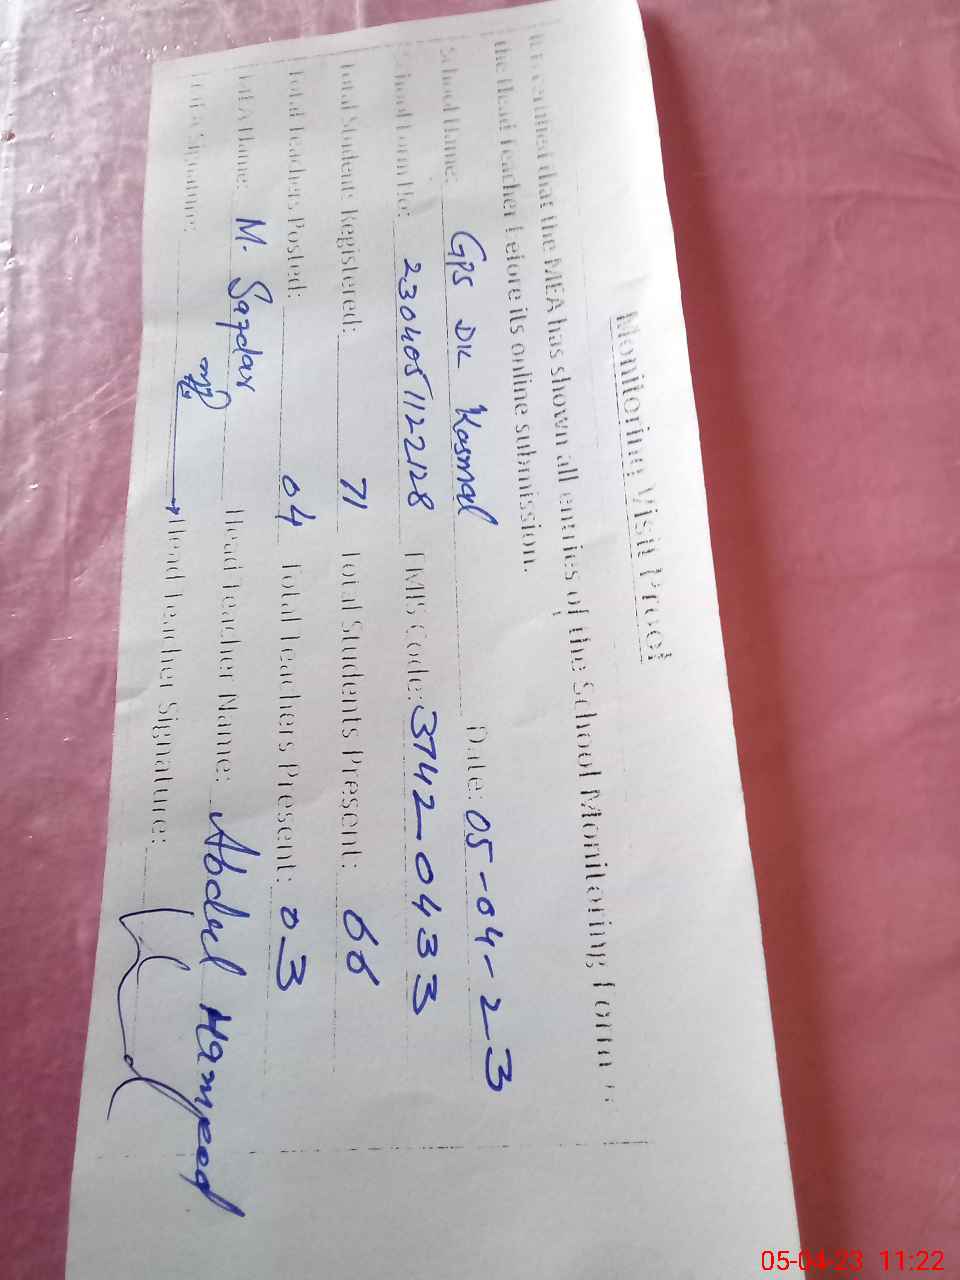 Monitoring Visit Proof
It is certified that the MEA has shown all entries of the School Monitoring Form to
the Head Teacher before its online submission.
School Name: GPS DK Kasmal Date: 05-04-23
School Form No: 2304051122128 EMIS Code: 3742-0433
Total Students Registered: 71 Total Students Present: 66
Total Teachers Posted: 04 Total Teachers Present: 03
MEA Name: M. Sazdar Head Teacher Name: Abdul Hameed
MEA Signature: Head Teacher Signature:
05-04-23 11:22